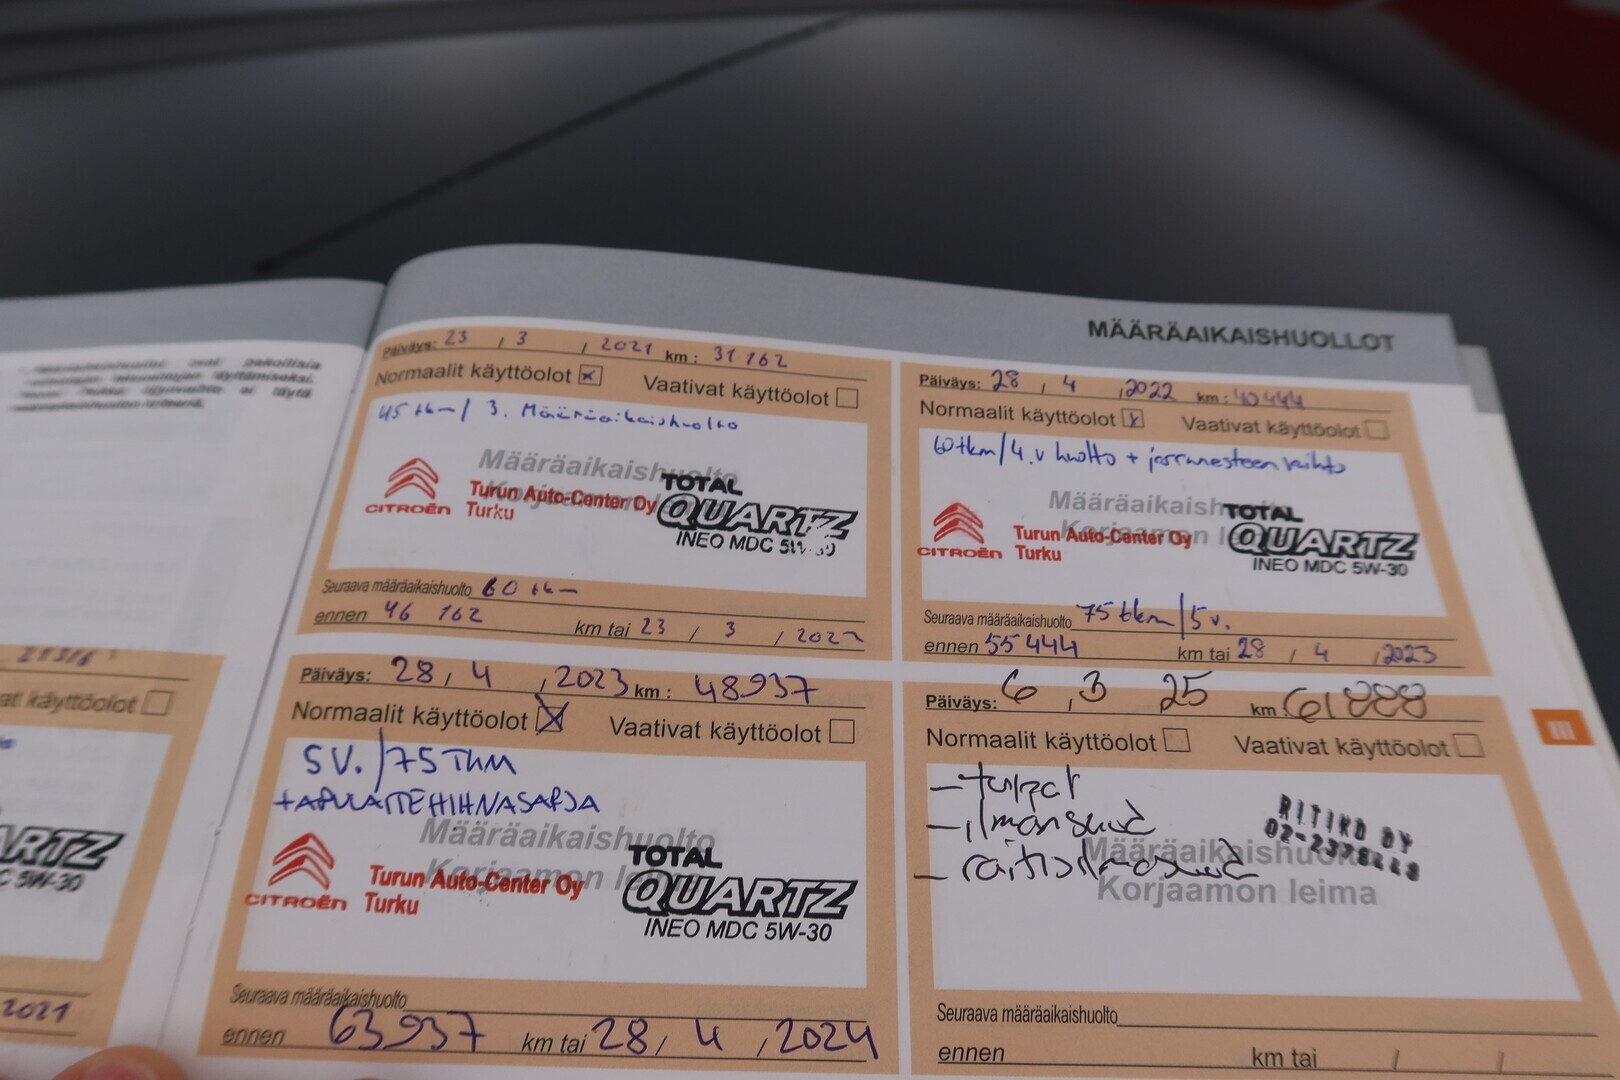 MÄÄRÄAIKAISHUOLLOT
Päiväys: 23 / 3 / 2021 km: 31 162
Normaalit käyttöolot x Vaativat käyttöolot
45 tkm / 3. Määräaikaishuolto
Määräaikaishuolto
CITROËN Turun Auto-Center Oy
Turku
TOTAL
QUARTZ
INEO MDC 5W-30
Seuraava määräaikaishuolto 60 tkm
ennen 46 162 km tai 23 / 3 / 2022
Päiväys: 28 / 4 / 2022 km: 40444
Normaalit käyttöolot x Vaativat käyttöolot
60tkm/4.v huolto + jarrunesteen vaihto
Määräaikaishuolto
Korjaamon leima
CITROËN Turun Auto-Center Oy
Turku
TOTAL
QUARTZ
INEO MDC 5W-30
Seuraava määräaikaishuolto 75tkm/5v.
ennen 55444 km tai 28 / 4 / 2023
Päiväys: 28 / 4 / 2023 km: 48937
Normaalit käyttöolot x Vaativat käyttöolot
5V./75TKM
+APULAITEHIHNASARJA
Määräaikaishuolto
Korjaamon leima
CITROËN Turun Auto-Center Oy
Turku
TOTAL
QUARTZ
INEO MDC 5W-30
Seuraava määräaikaishuolto
ennen 63937 km tai 28 / 4 / 2024
Päiväys: 6 / 3 25 km: 61888
Normaalit käyttöolot Vaativat käyttöolot
- ilmansuod
- raitisilmasuod
RITIKO OY
Määräaikaishuolto
Korjaamon leima
Seuraava määräaikaishuolto
ennen km tai / /
III
käyttöolot
QUARTZ
5W-30
2021